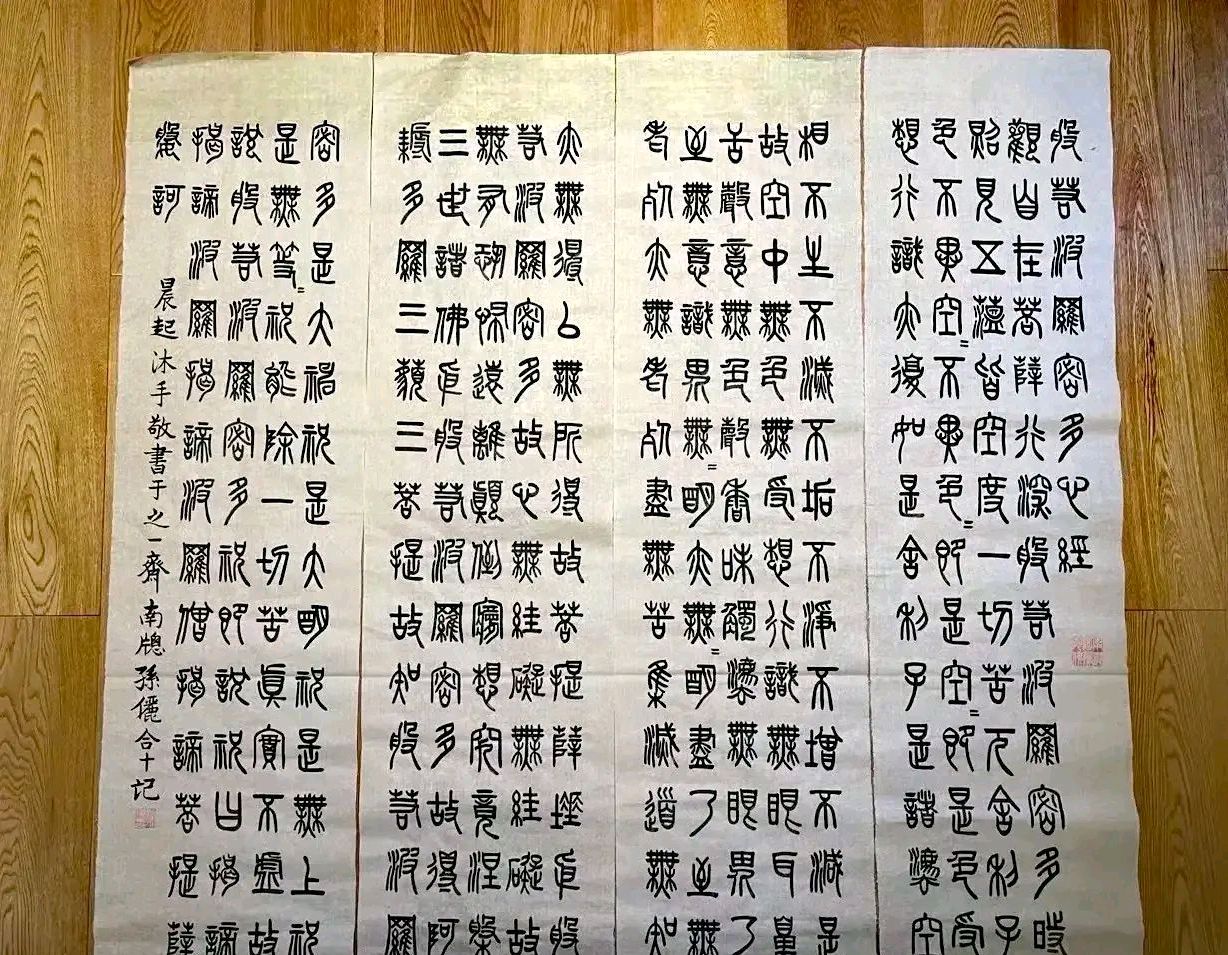 般若波羅密多心經
觀自在菩薩行深般若波羅密多時
照見五蘊皆空度一切苦厄舍利子
色不異空=不異色=即是空=即是色受
想行識亦復如是舍利子是諸灋空
相不生不滅不垢不淨不增不減是
故空中無色無受想行識無眼耳鼻
舌聲意無色聲香味觸灋無眼界乃
至無意識界無=明亦無=明盡乃至無
老死亦無老死盡無苦集滅道無知
亦無得以無所得故菩提薩埵依般
若波羅密多故心無絓礙無絓礙故
無有恐怖遠離顛倒夢想究竟涅槃
三世諸佛依般若波羅密多故得阿
耨多羅三藐三菩提故知般若波羅
密多是大神祝是大明祝是無上祝
是無等=祝能除一切苦真實不虛故
說般若波羅密多祝即說祝曰揭諦
揭諦波羅揭諦波羅僧揭諦菩提薩
婆訶
晨起沐手敬書于之一齋南牕孫儷合十記